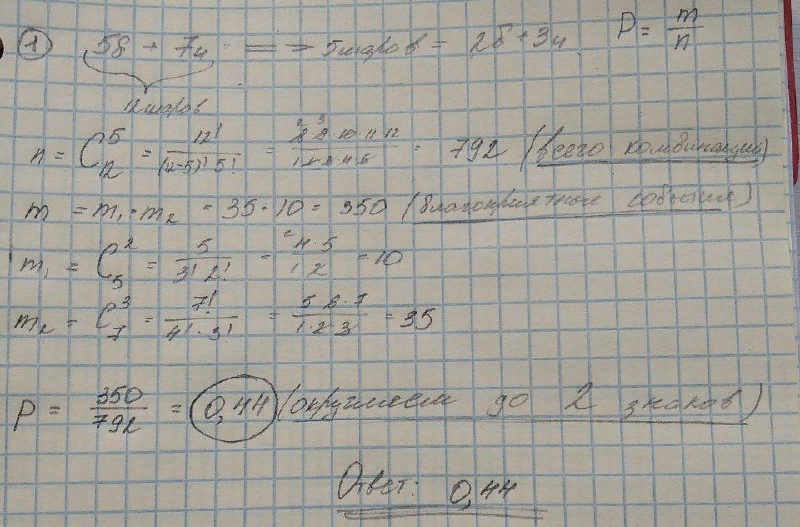 ① 5б + 7ч => 5 шаров = 2б + 3ч P = m/n
12 шаров
n = C₁₂⁵ = 12!/(12-5)! 5! = 8·9·10·11·12/1·2·3·4·5 = 792 (всего комбинаций)
m = m₁·m₂ = 35·10 = 350 (благоприятные события)
m₁ = C₅² = 5/3! 2! = 4·5/1·2 = 10
m₂ = C₇³ = 7!/4!·3! = 5·6·7/1·2·3 = 35
P = 350/792 = 0,44 (округляем до 2 знаков)
Ответ: 0,44